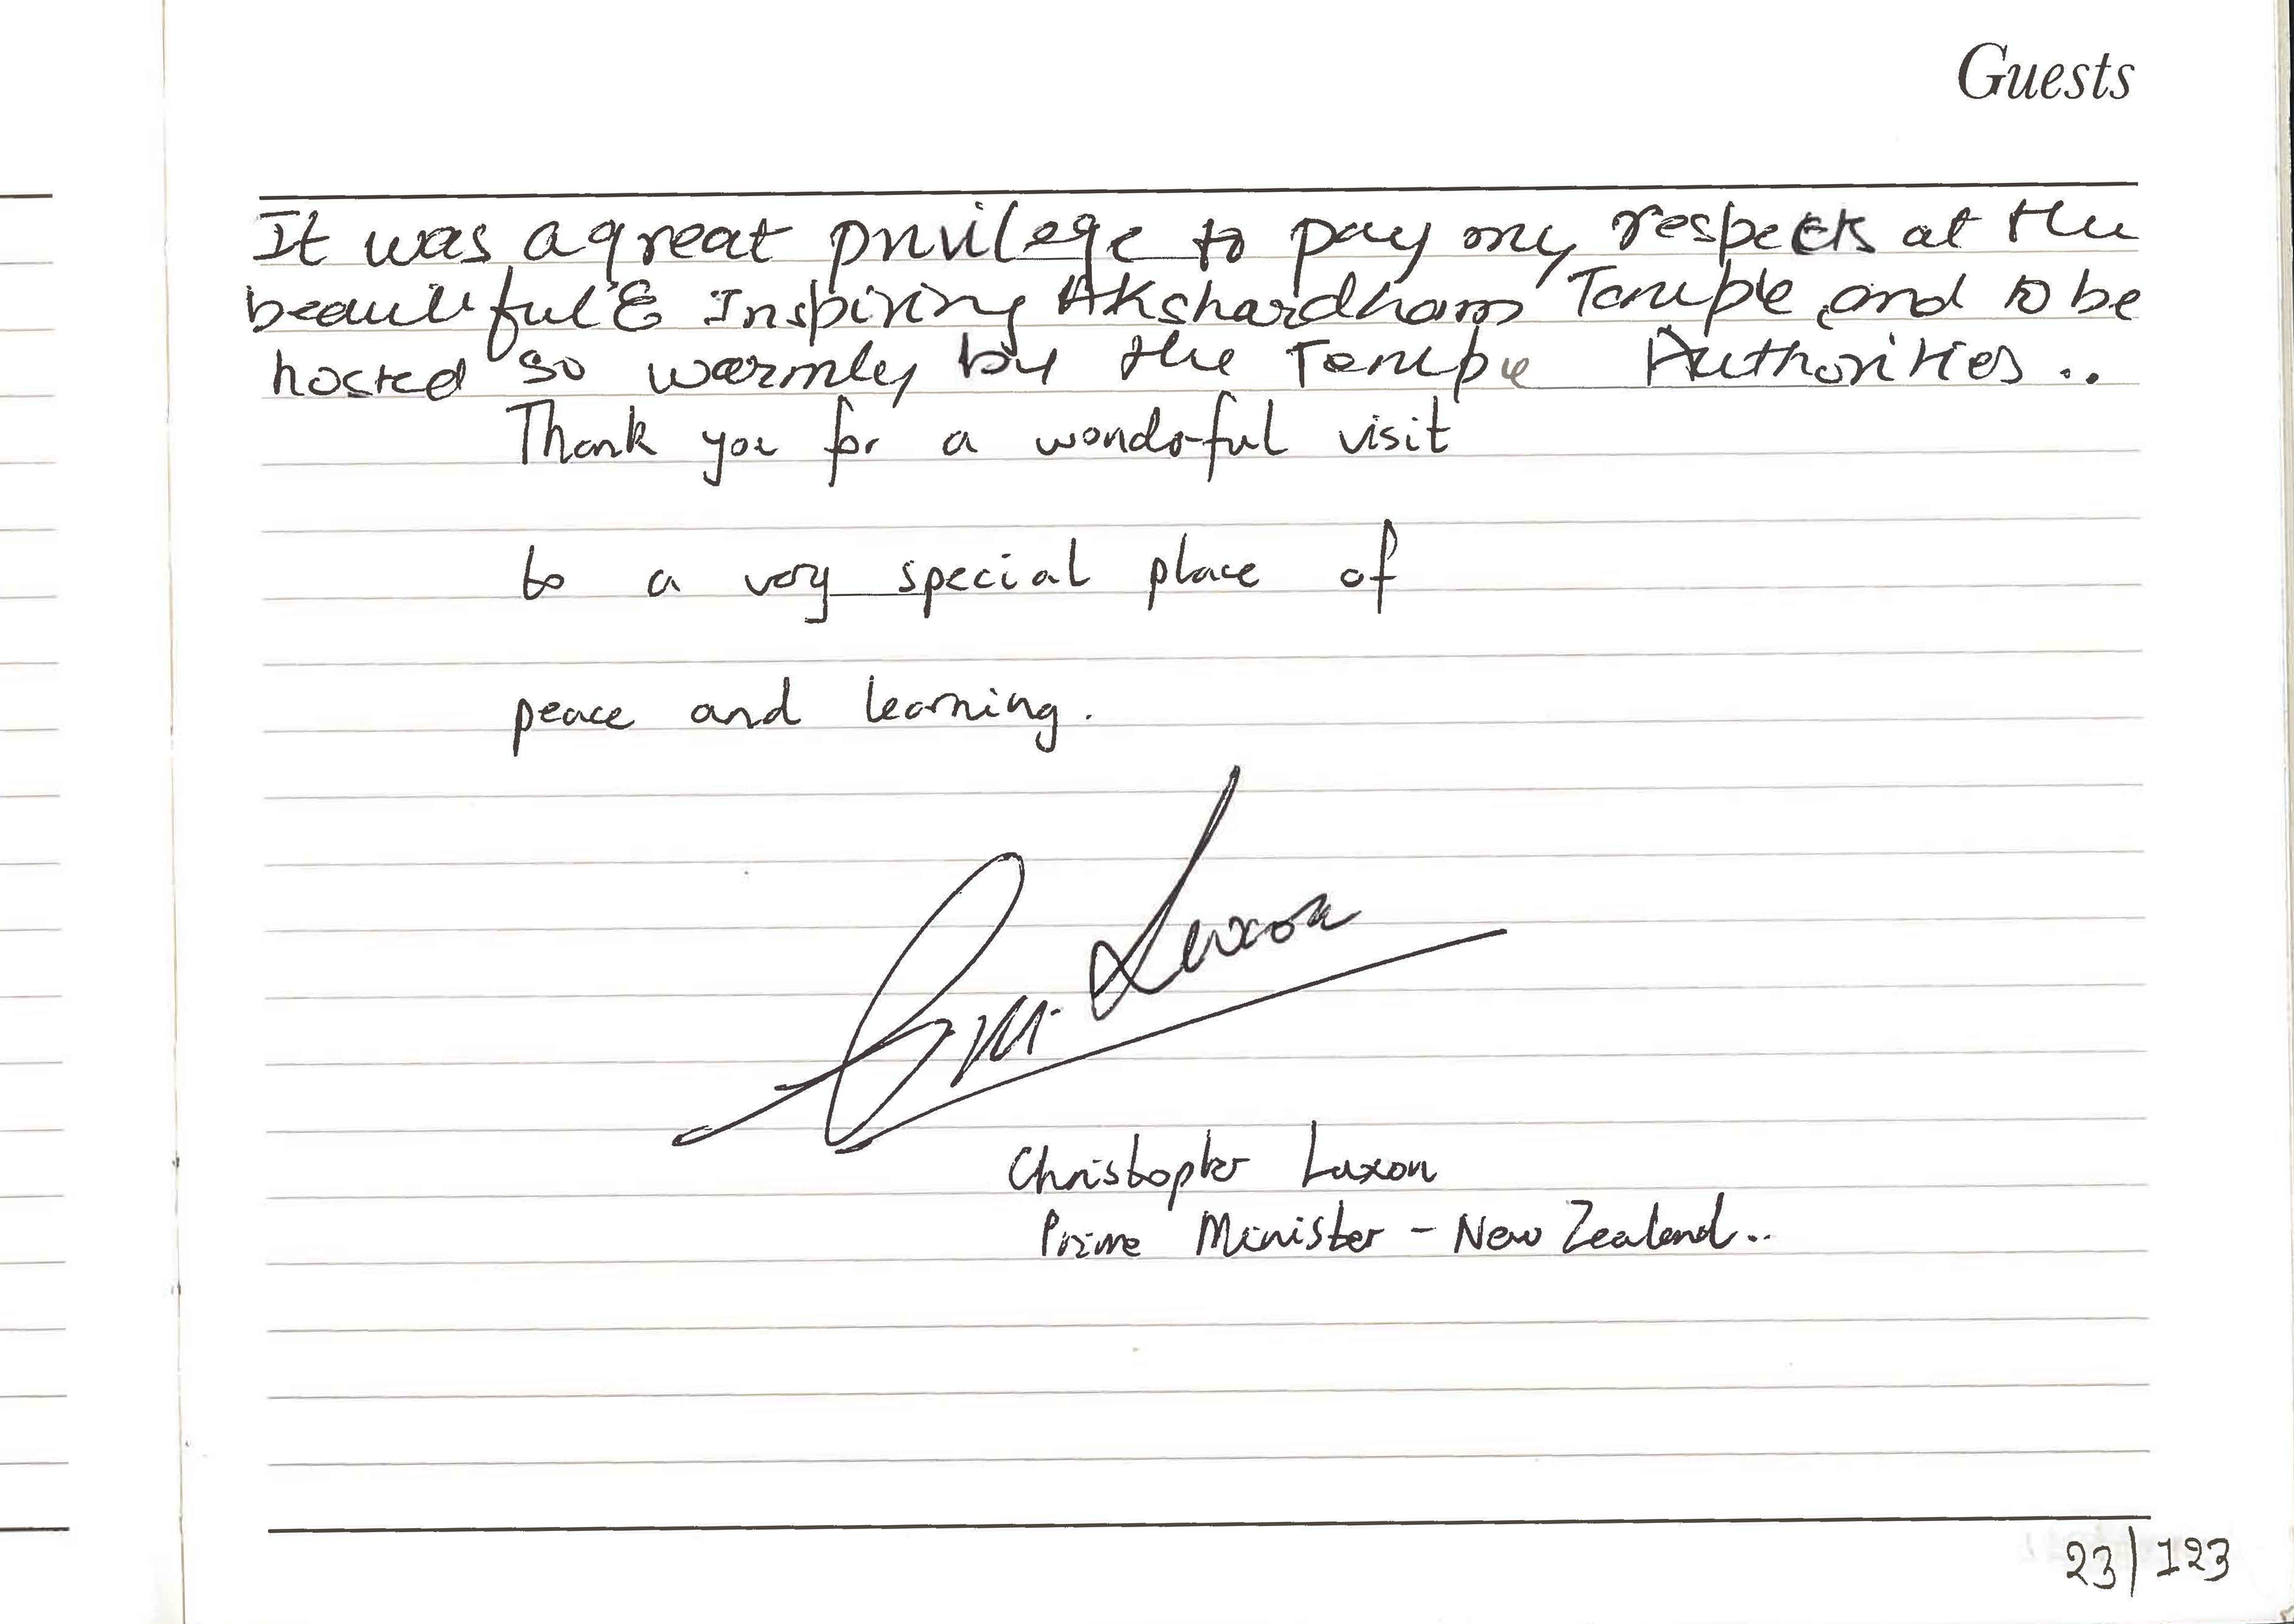 Guests
It was a great privilege to pay my respects at the
beautiful & Inspiring Akshardham Temple and to be
hosted so warmly by the Temple Authorities..
Thank you for a wonderful visit
to a very special place of
peace and learning.
C M. Luxon
Christopher Luxon
Prime Minister - New Zealand..
23/123